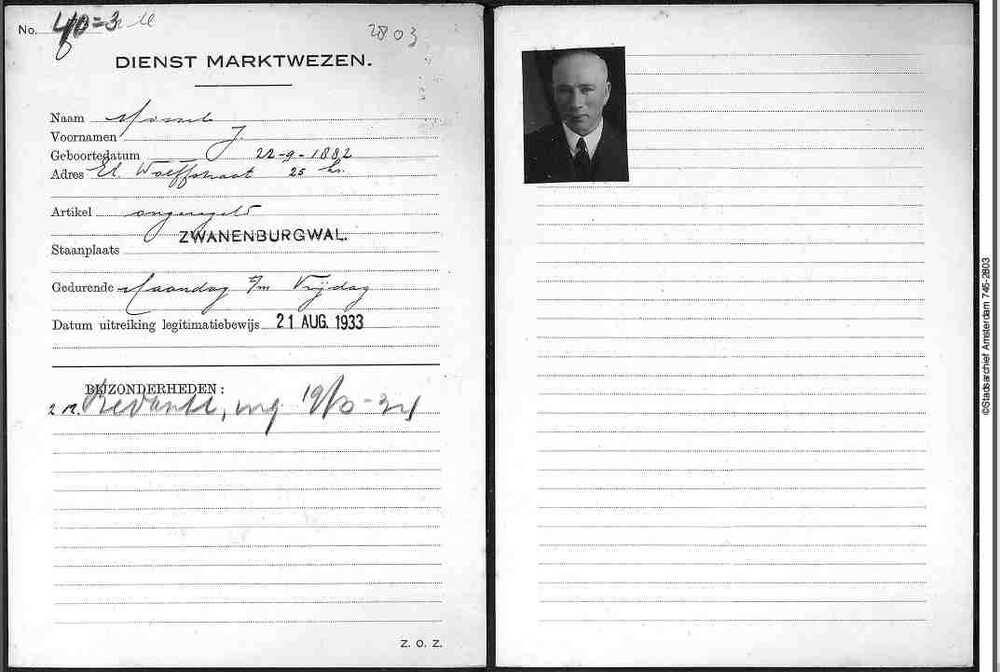 No. 40=3
2803
DIENST MARKTWEZEN.
Naam
Voornamen J.
Geboortedatum 22-9-1882
Adres El. Wolffstraat 25 hs.
Artikel ongeregeld
ZWANENBURGWAL.
Staanplaats
Gedurende Maandag t/m Vrijdag
Datum uitreiking legitimatiebewijs 21 AUG. 1933
BIJZONDERHEDEN:
2 M. Bedankt, ing. 19/10-34
Z. O. Z.
©Stadsarchief Amsterdam 745-2803